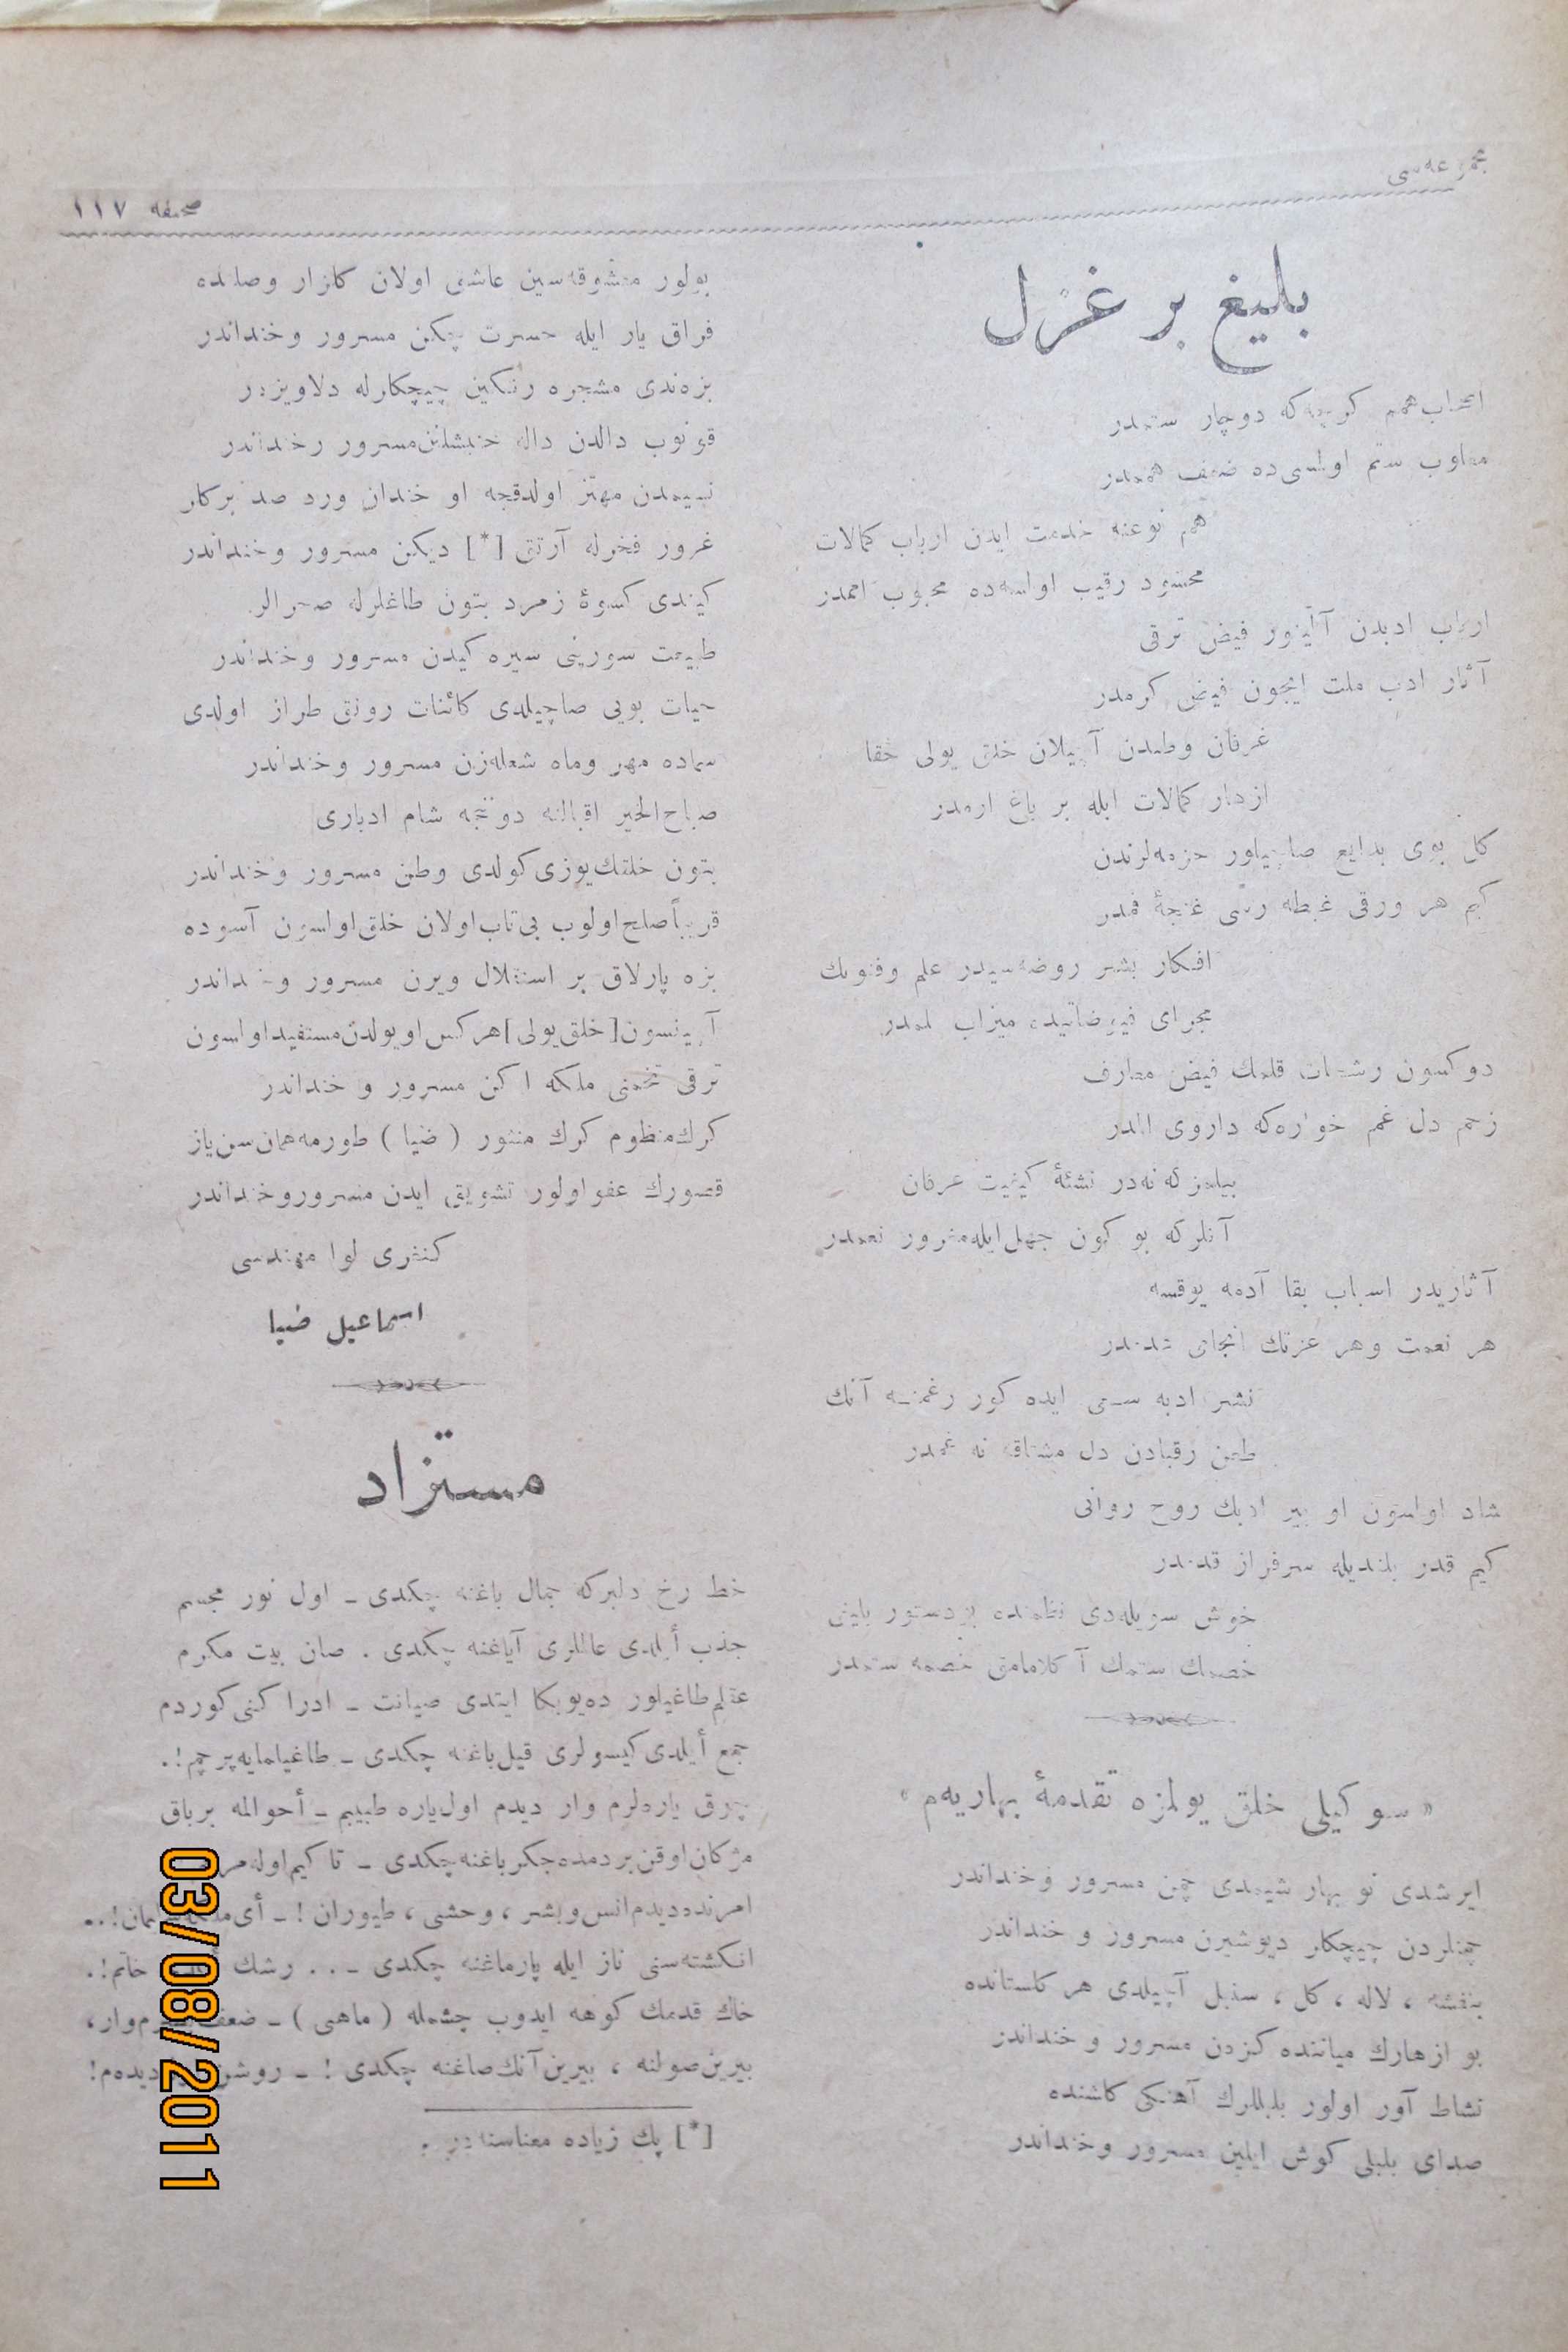 مجموعه‌سی
صحیفه ١١٧
بلیغ بر غزل
دوچار ستمدر
ستم اولسی‌ده ضعف هممدر
هم نوعنه خدمت ایدن ارباب کمالات
محسود رقیب اولسه‌ده محبوب اممدر
ارباب ادبدن آلیزور فیض ترقی
آثار ادب ملت ایچون فیض کرمدر
عرفان وطندن آچیلان خلق یولی حقا
ازهار کمالات ایله بر باغ ارمدر
کل بوی بدایع صاچیلور
کیم هر ورقی غبطه رس غنچهٔ فمدر
افکار بشر روضه‌سیدر علم وفنونك
مجرای فیوضاتیده میزاب قلمدر
دوکسون رشحات قلمك فیض معارف
زخم دل غم خواره‌که داروی المدر
بیلمز که نه‌در نشئهٔ کیفیت عرفان
آنلرکه بو کون جهل ایله مغرور نعمدر
آثاریدر اسباب بقا آدمه یوقسه
هر نعمت وهر عزتك انجامی عدمدر
نشر ادبه سعی ایده کور رغمنه آنك
طعن رقبادن دل مشتاقه نه غمدر
شاد اولسون او پیر ادبك روح روانی
کیم قدر بلندیله سرفراز قدمدر
خوش سویله‌دی نظمنده بو دستور بلیغی
خصمك ستمك آکلامامق خصمه ستمدر
« سوکیلی خلق یولمزه تقدمهٔ بهاریه‌م »
ایرشدی نو بهار شیمدی چمن مسرور وخنداندر
چمنلردن چیچکلر دیوشیرن مسرور و خنداندر
بنفشه ، لاله ، کل ، سنبل آچیلدی هر کلستانده
بو ازهارك میاننده کزن مسرور و خنداندر
نشاط آور اولور بلبللرك آهنکی کلشنده
صدای بلبلی کوش ایلین مسرور وخنداندر
بولور معشوقه‌سین عاشق اولان کلزار وصلنده
فراق یار ایله حسرت چکن مسرور وخنداندر
بزه‌ندی مشجره رنکین چیچکلرله دلاویزدر
قونوب دالدن داله مسرور وخنداندر
نسیمدن مهتز اولدقجه او خندان ورد صد برکلر
غرور فخرله آرتق [*] دیکن مسرور وخنداندر
کیندی کسوهٔ زمرد بتون طاغلرله صحرالر
طبیعت سورینی سیره کیدن مسرور وخنداندر
حیات بویی صاچیلدی کائنات رونق طراز اولدی
سماده مهر وماه شعله‌زن مسرور وخنداندر
صباح الخیر اقبالنه دونجه شام ادباری
بتون خلقك یوزی کولدی وطن مسرور وخنداندر
قریباً صلح اولوب بی‌تاب اولان خلق اولسون آسوده
بزه پارلاق بر استقلال ویرن مسرور وخنداندر
[خلق یولی] هرکس او یولدن مستفید اولسون
ترقی تخمنی ملکه اکن مسرور و خنداندر
کرك منظوم کرك منثور ( ضیا ) طورمه همان سن یاز
قصورك عفو اولور تشویق ایدن مسرور وخنداندر
کنغری لوا مهندسی
اسماعیل ضیا
مستزاد
خط رخ دلبرکه جمال باغنه چکدی ـ اول نور مجسم
جذب أیلدی عاللری آیاغنه چکدی . صان بیت مکرم
عقلم طاغیلور ده‌یو بکا ایتدی صیانت ـ ادراکنی کوردم
جمع أیلدی کیسولری قیل باغنه چکدی ـ طاغیلمایه پرچم !.
یاره‌لرم وار دیدم اول یاره طبیبم ـ أحوالمه بر باق
مژکان اوقن بر دمده جکر باغنه چکدی ـ تا کیم اوله
امرنده دیدم انس وبشر ، وحشی ، طیوران ! ـ أی
انکشته‌سنی ناز ایله پارماغنه چکدی ـ . . رشك خاتم !.
خاك قدمك کوهه ایدوب چشمله ( ماهی ) ـ
بیرین صولنه ، بیرین آنك صاغنه چکدی ! ـ دیده‌م !
[*] پك زیاده معناسنه‌در .
03/08/2011